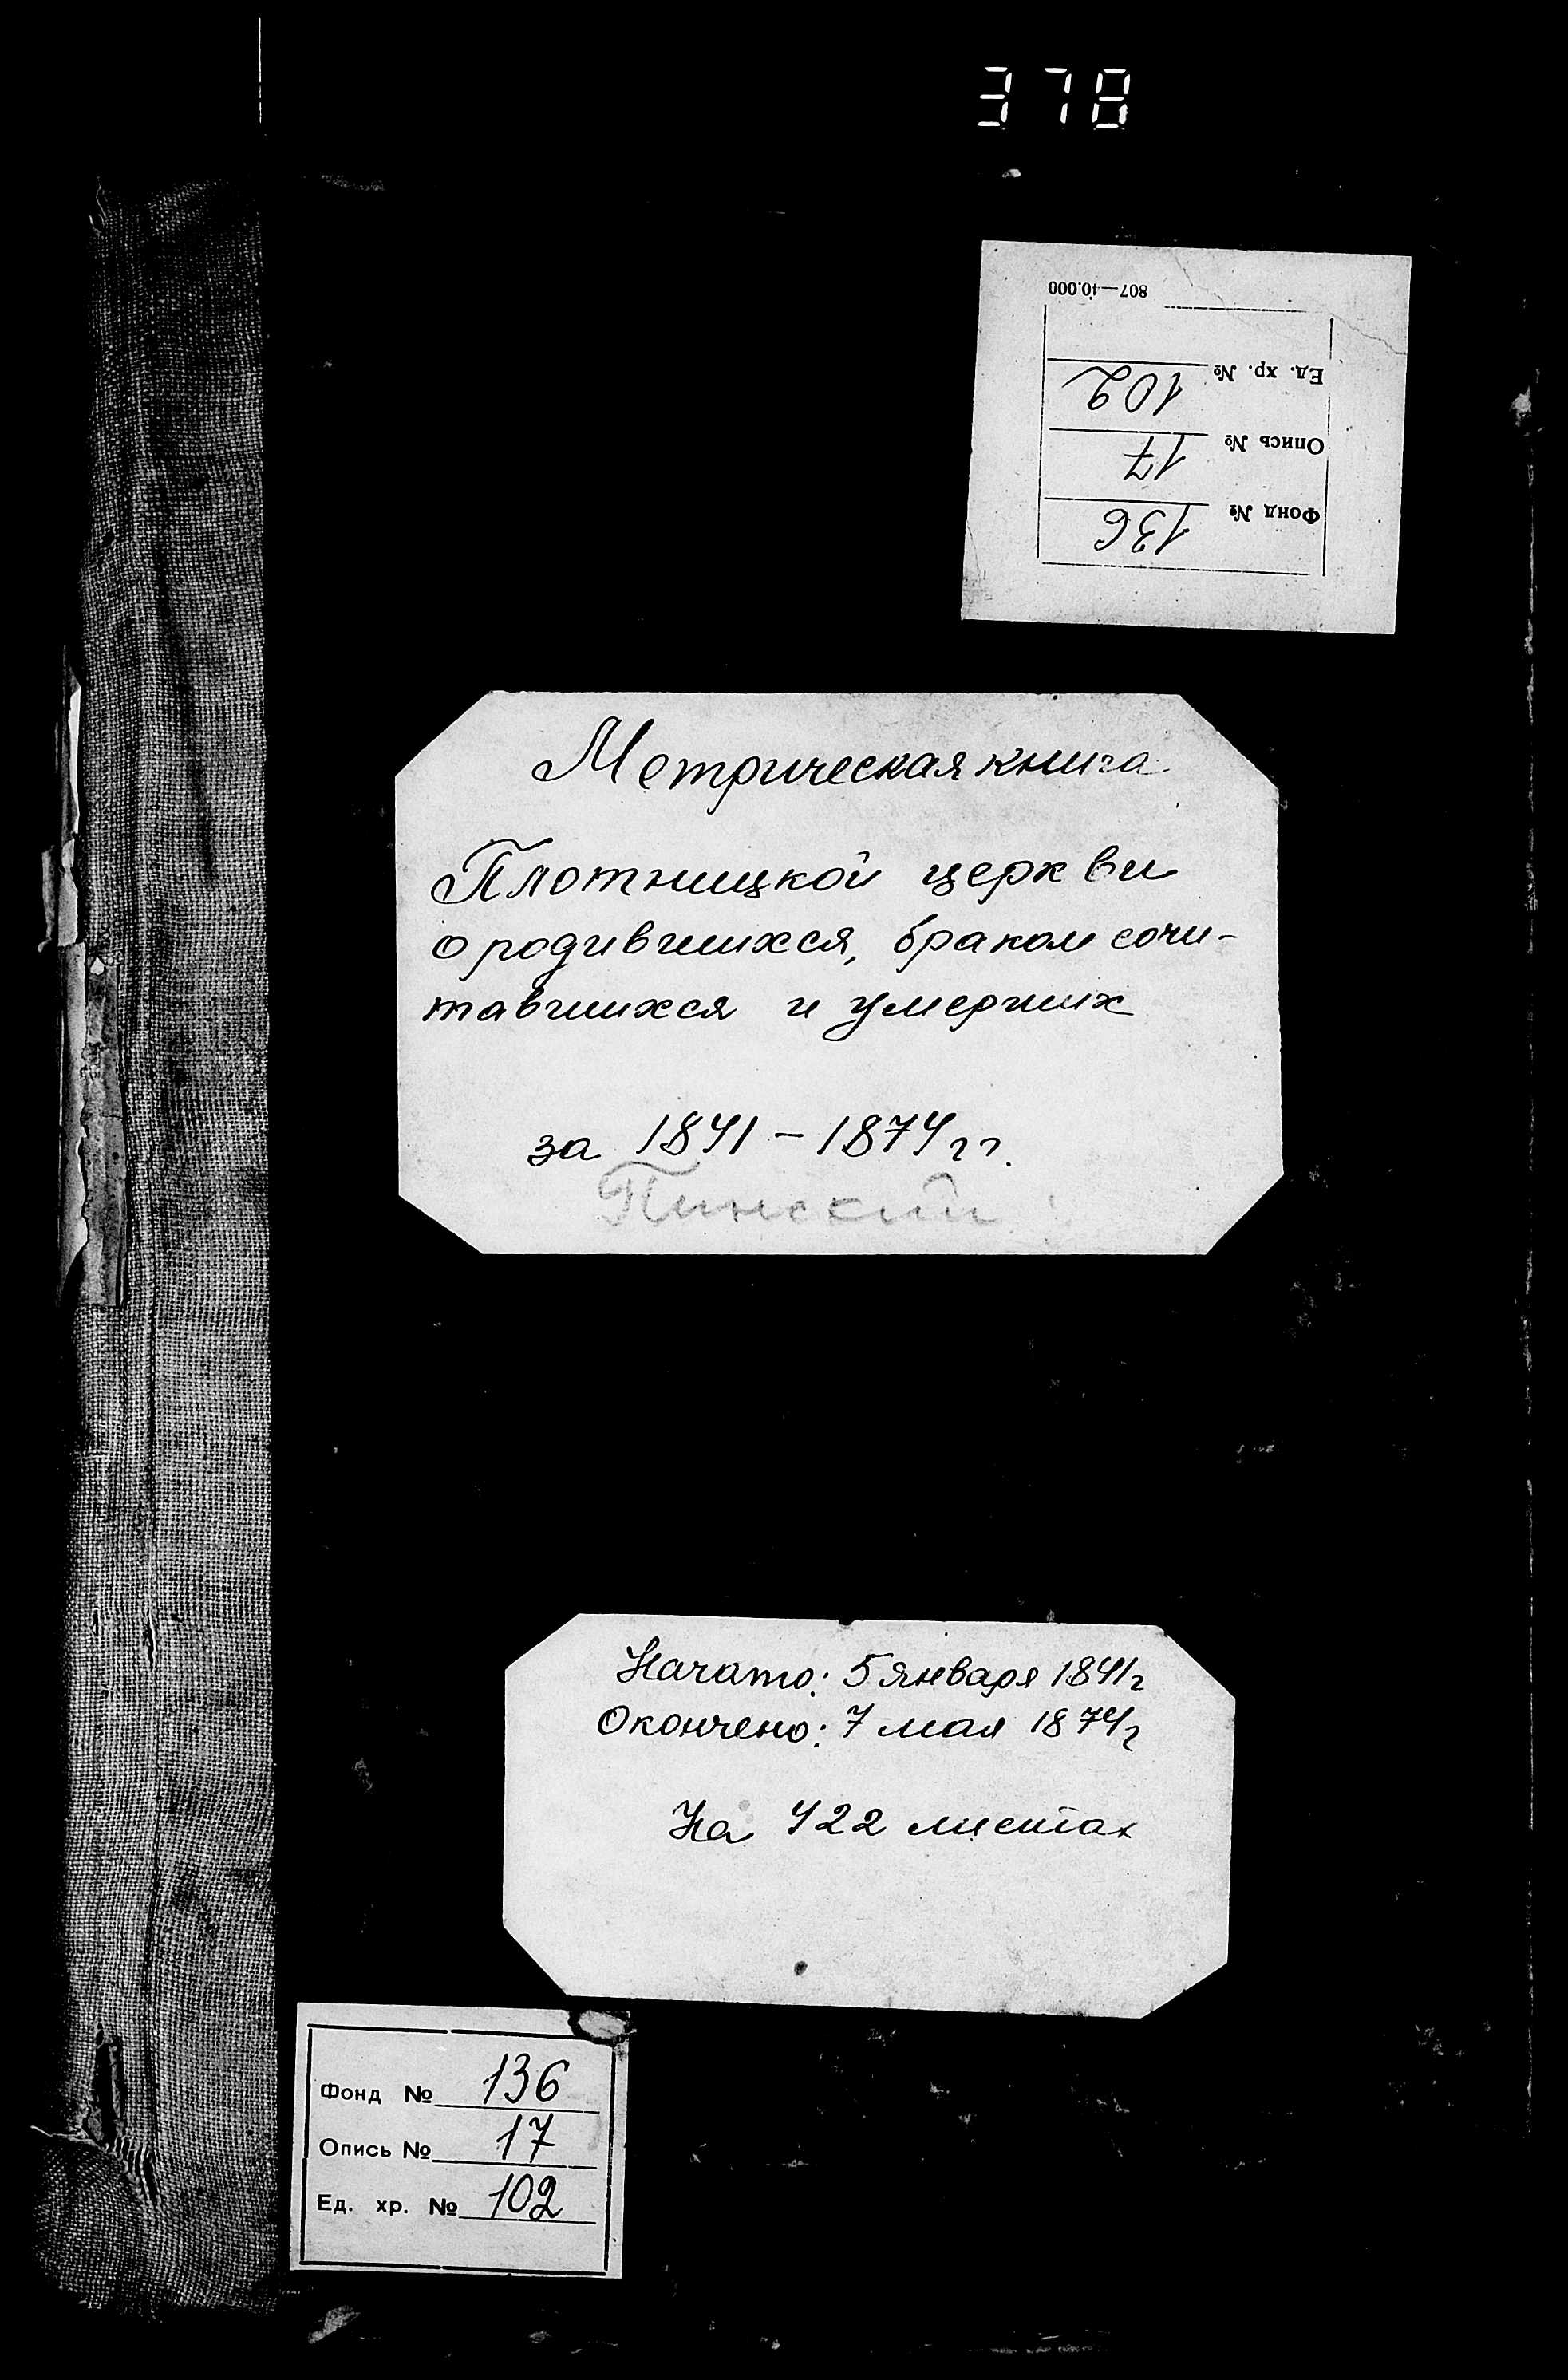 378
807—10.000
Ед. хр. № 102
Опись № 17
Фонд № 136
Метрическая книга
Плотницкой церкви
о родившихся, браком сочи-
тавшихся и умерших
за 1841 – 1874 гг.
Пинский
Начато: 5 января 1841г
Окончено: 7 мая 1874г
На 422 листах
Фонд № 136
Опись № 17
Ед. хр. № 102